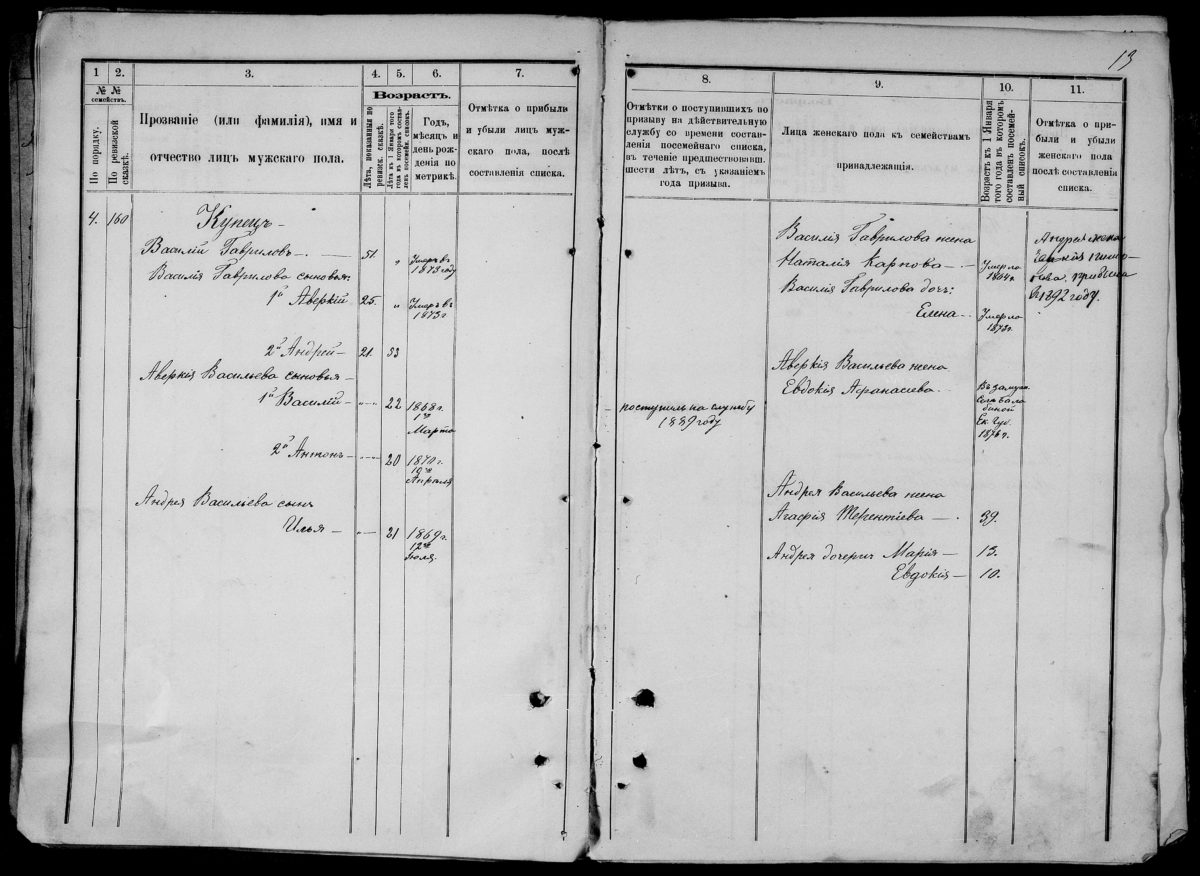 13
1
2.
3.
4.
5.
6.
7.
№ №
семействъ.
По порядку.
По ревизской
сказкѣ.
Прозваніе (или фамилія), имя и
отчество лицъ мужскаго пола.
Возрастъ.
Лѣта, показанныя по
ревизск. сказкѣ.
Лѣта къ 1 Января того
года въ которомъ состав-
ленъ посемейн. списокъ.
Годъ,
мѣсяцъ и
день рож-
денія по
метрикѣ.
Отмѣтка о прибыли
и убыли лицъ муж-
скаго пола, послѣ
составленія списка.
4. 160
Купецъ
Василій Гавриловъ 51. „ Умеръ въ
1873 году
Василія Гаврилова сыновья:
1й Аверкій 25. „ Умеръ въ
1873 г
2й Андрей 21. 33
Аверкія Васильева сыновья
1й Василій „ 22 1868 г.
Марта
2й Антонъ „ 20 1870 г.
19го
Апрѣля
Андрея Васильева сынъ
Илья „ 21 1869 г.
12го
Іюля
8.
9.
10.
11.
Отмѣтки о поступившихъ по
призыву на дѣйствительную
службу со времени состав-
ленія посемейнаго списка,
въ теченіе предшествовавш.
шести лѣтъ, съ указаніемъ
года призыва.
Лица женскаго пола къ семействамъ
принадлежащія.
Возрастъ къ 1 Января
того года въ которомъ
составленъ посемей-
ный списокъ.
Отмѣтка о при-
были и убыли
женскаго пола
послѣ составленія
списка.
Василія Гаврилова жена
Наталія Карпова Умерла
1864 г.
Василія Гаврилова дочь:
Елена Умерла
1873 г.
Андрея жена
прибыла
1892 году.
Аверкія Васильева жена
Евдокія Афанасіева Въ замуж.
Ек. Губ.
1876 г.
поступилъ на службу
1889 году
Андрея Васильева жена
Агафія Терентіева 39.
Андрея дочери Марія 13.
Евдокія 10.